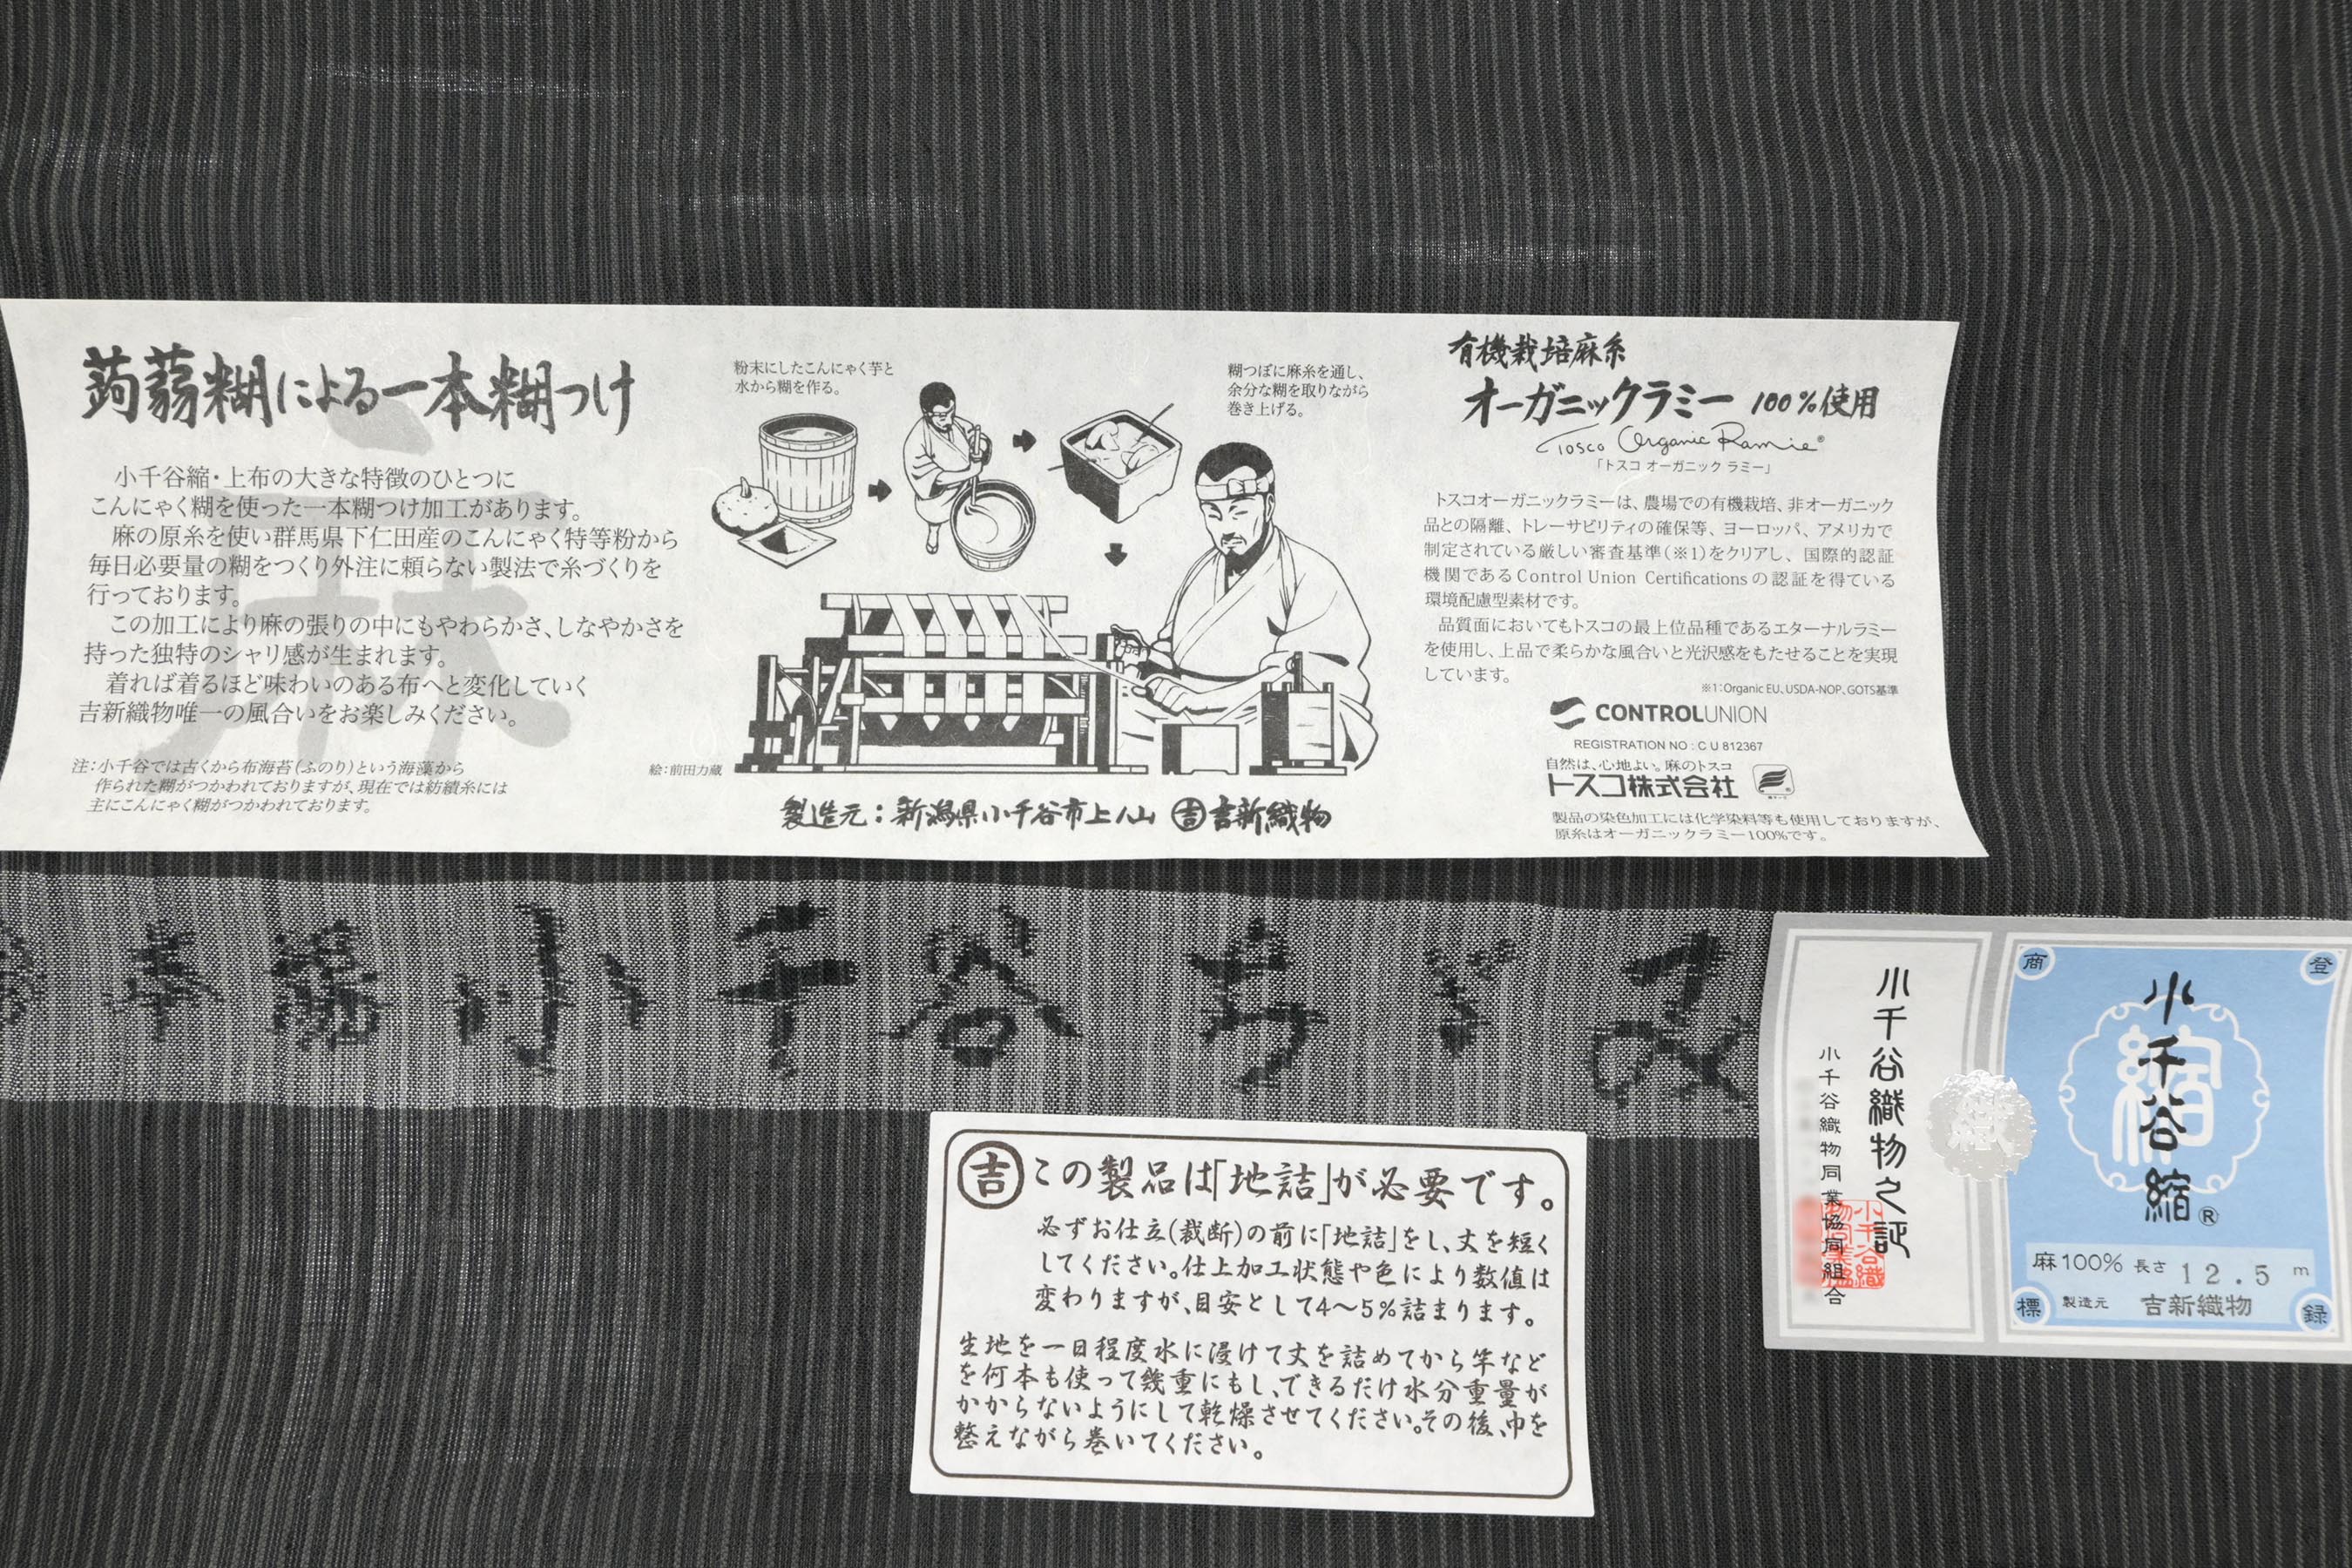 蒟蒻糊による一本糊つけ
小千谷縮・上布の大きな特徴のひとつに
こんにゃく糊を使った一本糊つけ加工があります。
麻の原糸を使い群馬県下仁田産のこんにゃく特等粉から
毎日必要量の糊をつくり外注に頼らない製法で糸づくりを
行っております。
この加工により麻の張りの中にもやわらかさ、しなやかさを
持った独特のシャリ感が生まれます。
着れば着るほど味わいのある布へと変化していく
吉新織物唯一の風合いをお楽しみください。
麻
注:小千谷では古くから布海苔(ふのり)という海藻から
作られた糊がつかわれておりますが、現在では紡績糸には
主にこんにゃく糊がつかわれております。
粉末にしたこんにゃく芋と
水から糊を作る。
糊つぼに麻糸を通し、
余分な糊を取りながら
巻き上げる。
絵:前田力蔵
製造元:新潟県小千谷市上ノ山 吉 吉新織物
有機栽培麻糸
オーガニックラミー 100%使用
Tosco Organic Ramie®
「トスコ オーガニック ラミー」
トスコオーガニックラミーは、農場での有機栽培、非オーガニック
品との隔離、トレーサビリティの確保等、ヨーロッパ、アメリカで
制定されている厳しい審査基準(※1)をクリアし、国際的認証
機関であるControl Union Certificationsの認証を得ている
環境配慮型素材です。
品質面においてもトスコの最上位品種であるエターナルラミー
を使用し、上品で柔らかな風合いと光沢感をもたせることを実現
しています。
※1:Organic EU、USDA-NOP、GOTS基準
CONTROLUNION
REGISTRATION NO : C U 812367
自然は、心地よい。麻のトスコ
トスコ株式会社
製品の染色加工には化学染料等も使用しておりますが、
原糸はオーガニックラミー100%です。
本
小千谷ちゞみ
小千谷織物之証
小千谷織物同業協同組合
商
登
標
録
縮
小千谷縮®
麻100% 長さ 12.5 m
製造元 吉新織物
吉 この製品は「地詰」が必要です。
必ずお仕立(裁断)の前に「地詰」をし、丈を短く
してください。仕上加工状態や色により数値は
変わりますが、目安として4〜5%詰まります。
生地を一日程度水に浸けて丈を詰めてから竿など
を何本も使って幾重にもし、できるだけ水分重量が
かからないようにして乾燥させてください。その後、巾を
整えながら巻いてください。